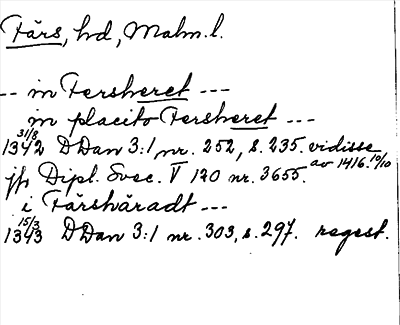 Färs, hd, Malm. l.
-- in Fersheret ---
in placito Fersheret ---
31/8
1342 DDan 3:1 nr. 252, s. 235. vidisse
av 1416 10/10
jfr Dipl. Svec. V 120 nr. 3655.
i Färshäradt ---
15/3
1343 DDan 3:1 nr. 303, s. 297. regest.